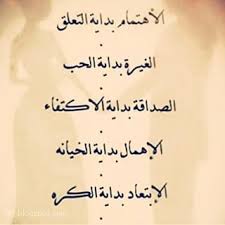 الأهتمام بداية التعلق
الغيرة بداية الحب
الصداقة بداية الاكتفاء
الإهمال بداية الخيانه
الإبتعاد بداية الكره